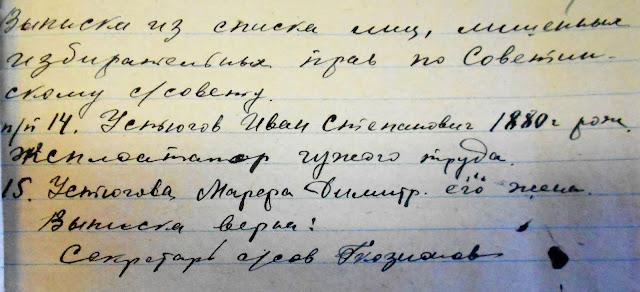 Выписка из списка лиц, лишенных
избирательных прав по Советин-
скому с/совету.
п/п 14. Устюгов Иван Степанович 1880 г рож.
Эксплоататор чужого труда.
15. Устюгова, Димитр. его жена.
Выписка верна:
Секретарь с/сов